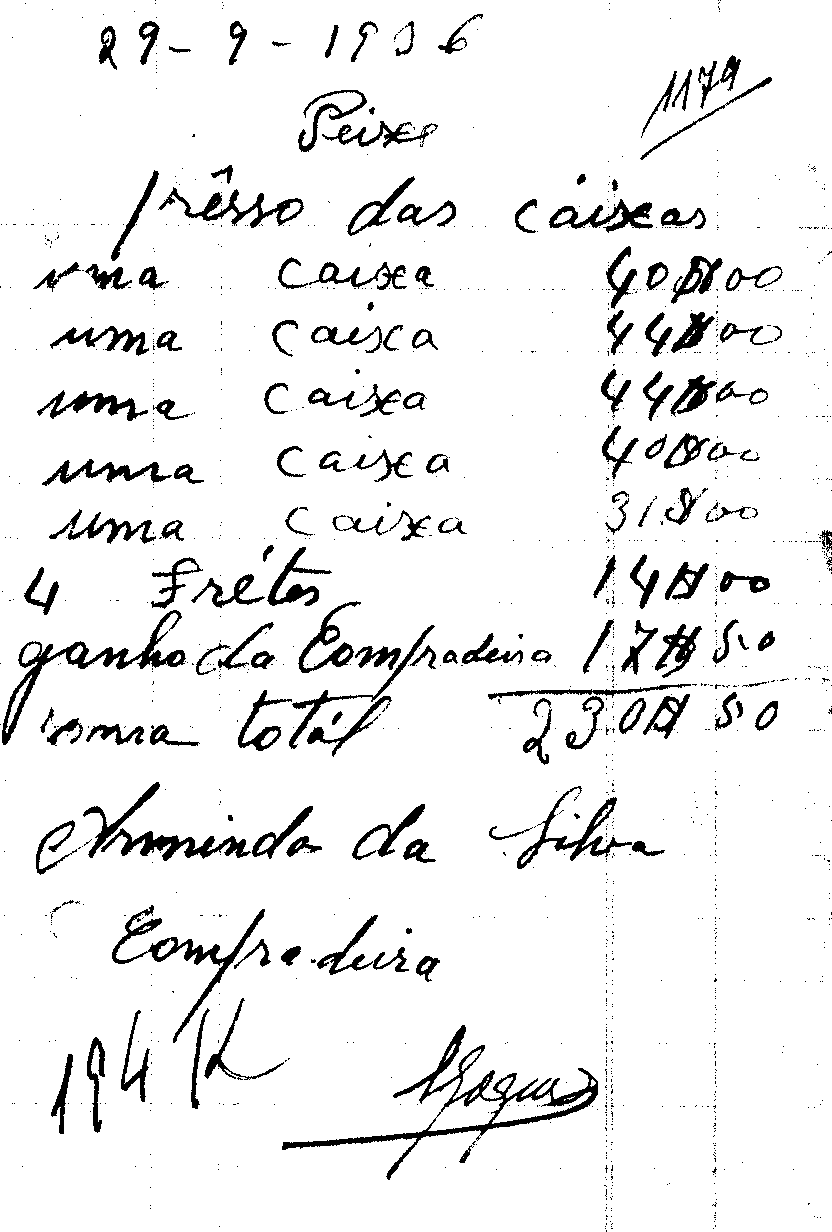 29-9-1936
1179
Peixe
prêsso das cáixas
uma caixa 40$00
uma caixa 44$00
uma caixa 44$00
uma caixa 40$00
uma caixa 31$00
4 Frétes 14$00
ganho da Compradeira 17$50
soma totál 230$50
Arminda da Silva
Compradeira
194 K